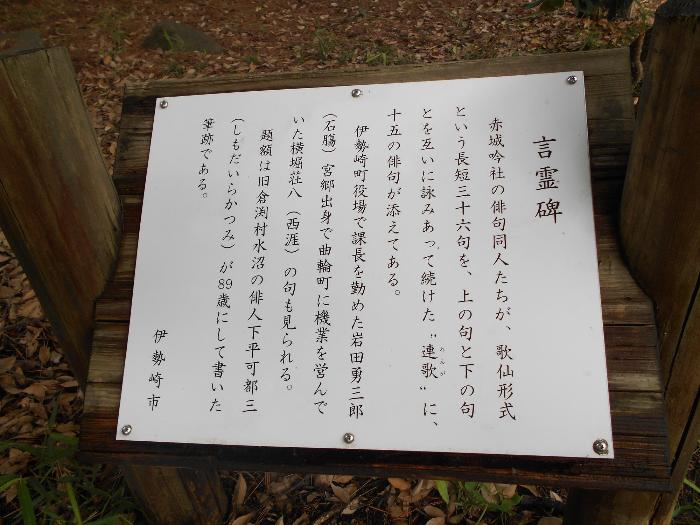 言霊碑
赤城吟社の俳句同人たちが、歌仙形式
という長短三十六句を、上の句と下の句
とを互いに詠みあって続けた〝連歌〟に、
れんが
十五の俳句が添えてある。
伊勢崎町役場で課長を勤めた岩田勇三郎
（石腸）宮郷出身で曲輪町に機業を営んで
いた横堀荘八（西涯）の句も見られる。
題額は旧倉渕村水沼の俳人下平可都三
（しもだいらかつみ）が89歳にして書いた
筆跡である。
伊勢崎市